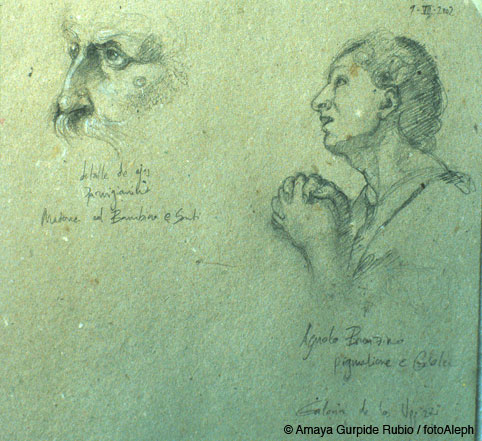 9-VII-2002
detalle de ojos
Parmigianino
Madonna col Bambino e Santi
Agnolo Bronzino
Pigmalione e Galatea
Galería de los Uffizi
© Amaya Gurpide Rubio / fotoAleph